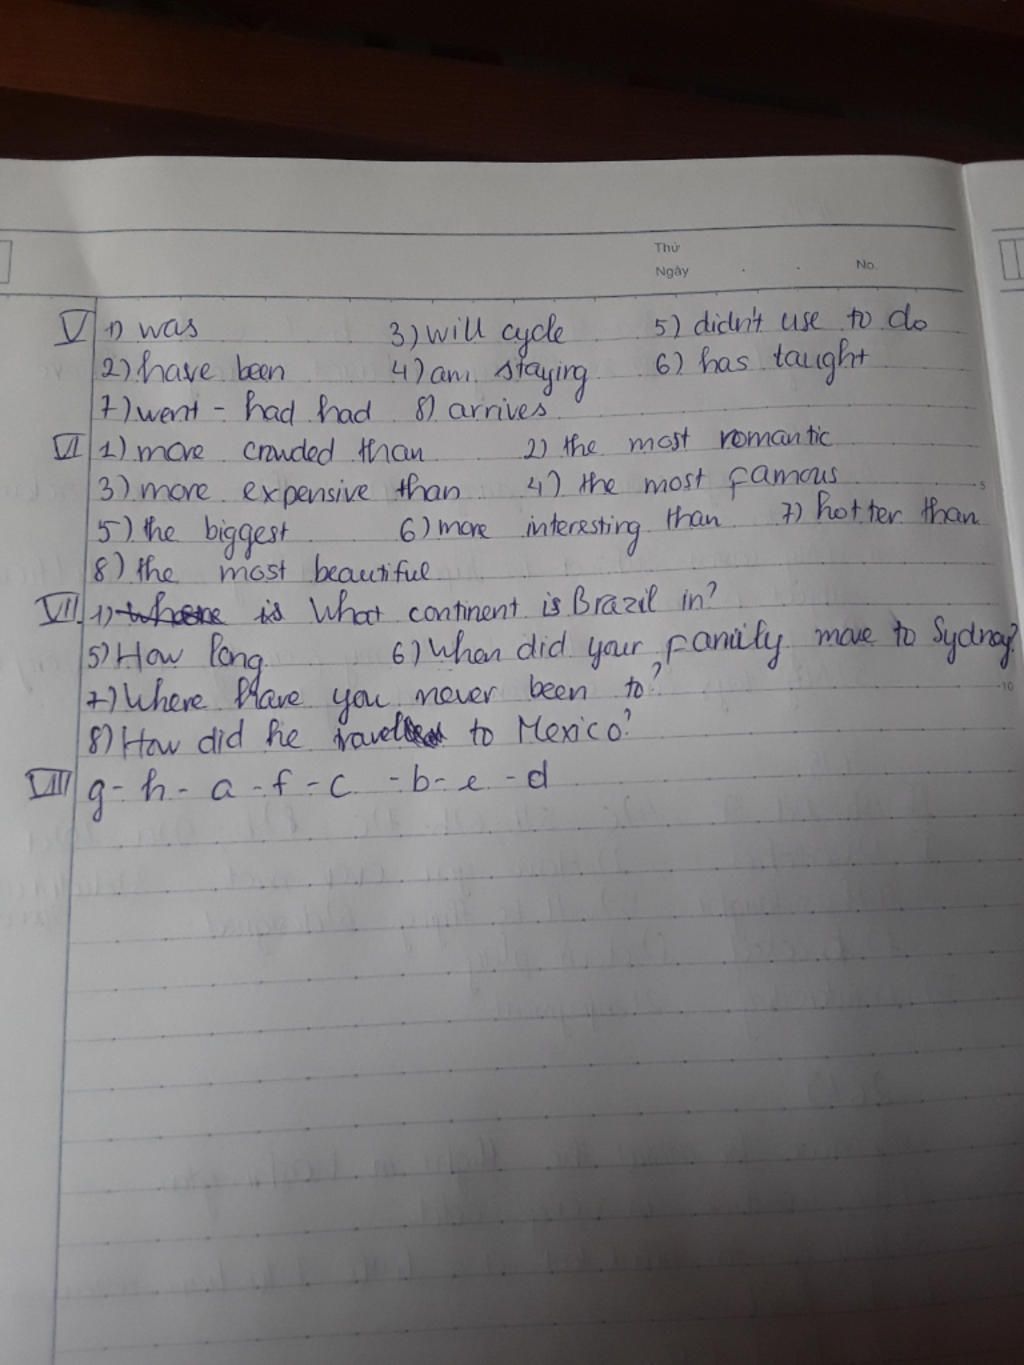 Thứ
Ngày . . No.
V 1) was 3) will cycle 5) didn't use to do
2) have been 4) am staying 6) has taught
7) went - had had 8) arrives
VI 1) more crowded than 2) the most romantic
3) more expensive than 4) the most famous
5) the biggest 6) more interesting than 7) hotter than
8) the most beautiful
VII. 1) Where is What continent is Brazil in?
5) How long 6) When did your family move to Sydney?
7) Where have you never been to?
8) How did he travel to Mexico?
VIII g - h - a - f - c - b - e - d
5
10